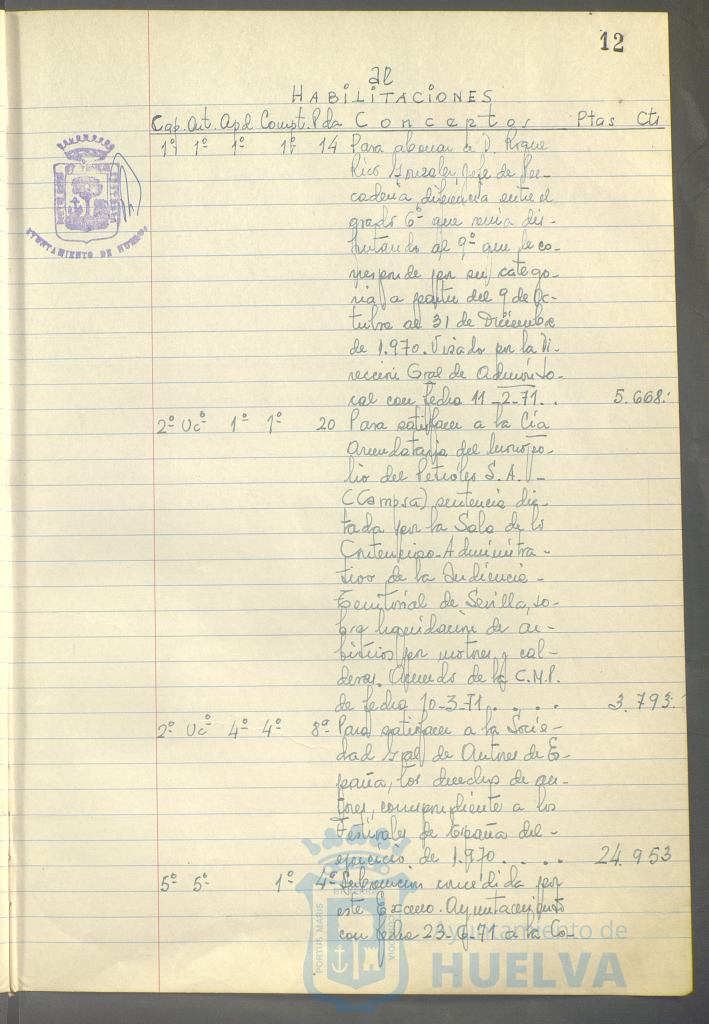 12
HABILITACIONES
Cap. Art. Apd. Compt. Pda Conceptos Ptas Cts
1º 1º 1º 1º 14 Para abonar a D. Roque
Rico Gonzalez, Jefe de Re-
caderia, diferencia entre el
grado 6º que venia dis-
frutando al 9º que le co-
rresponde por su catego-
ria, a partir del 9 de Oc-
tubre al 31 de Diciembre
de 1.970. Visado por la Di-
rección Gral de Admón Lo-
cal con fecha 11-2-71.. 5.668.
2º Uc.º 1º 1º 20 Para satisfacer a la Cia
Arrendataria del Monopo-
lio del Petroleo S.A. -
(Campsa) sentencia dic-
tada por la Sala de lo
Contencioso-Administra-
tivo de la Audiencia -
Territorial de Sevilla, so-
bre liquidación de ar-
bitrios por motores y cal-
deras. Acuerdo de la C.M.P.
de fecha 10-3-71.... 3.793.
2º Uc.º 4º 4º 8ª Para satisfacer a la Socie-
dad Gral de Autores de Es-
paña, los derechos de au-
tores, correspondiente a los
Festivales de España del -
ejercicio de 1.970.... 24.953
5º 5º 1º 4º Subvención concedida por
este Excmo. Ayuntamiento
con fecha 23-6-71 a la Co-
AYUNTAMIENTO DE HUELVA
PORTUS MARIS
Ayuntamiento de
HUELVA